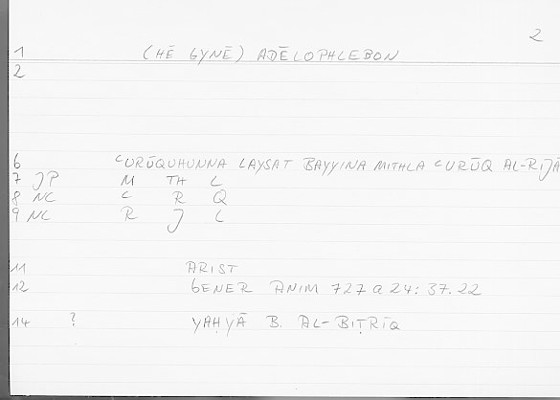 2
1 (HĒ GYNĒ) ADĒLOPHLEBON
2
6 ʿURŪQUHUNNA LAYSAT BAYYINA MITHLA ʿURŪQ AL-RIJĀ
7 JP M TH L
8 NC ʿ R Q
9 NC R J L
11 ARIST
12 GENER ANIM 727 a 24 : 37.22
14 ? YAḤYĀ B. AL-BIṬRĪQ